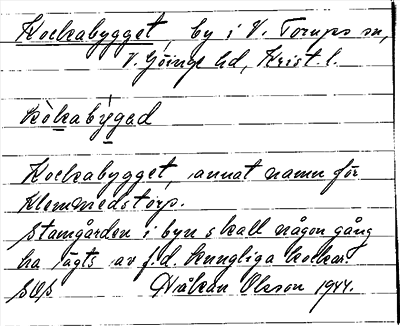 Kockabygget, by i V. Torups sn,
V. Göinge hd, Krist. l.
kòkabỳgad
Kockabygget, annat namn för
Klemmedstorp.
Stamgården i byn skall någon gång
ha ägts av f.d. kungliga kockar.
Håkan Olsson 1944.